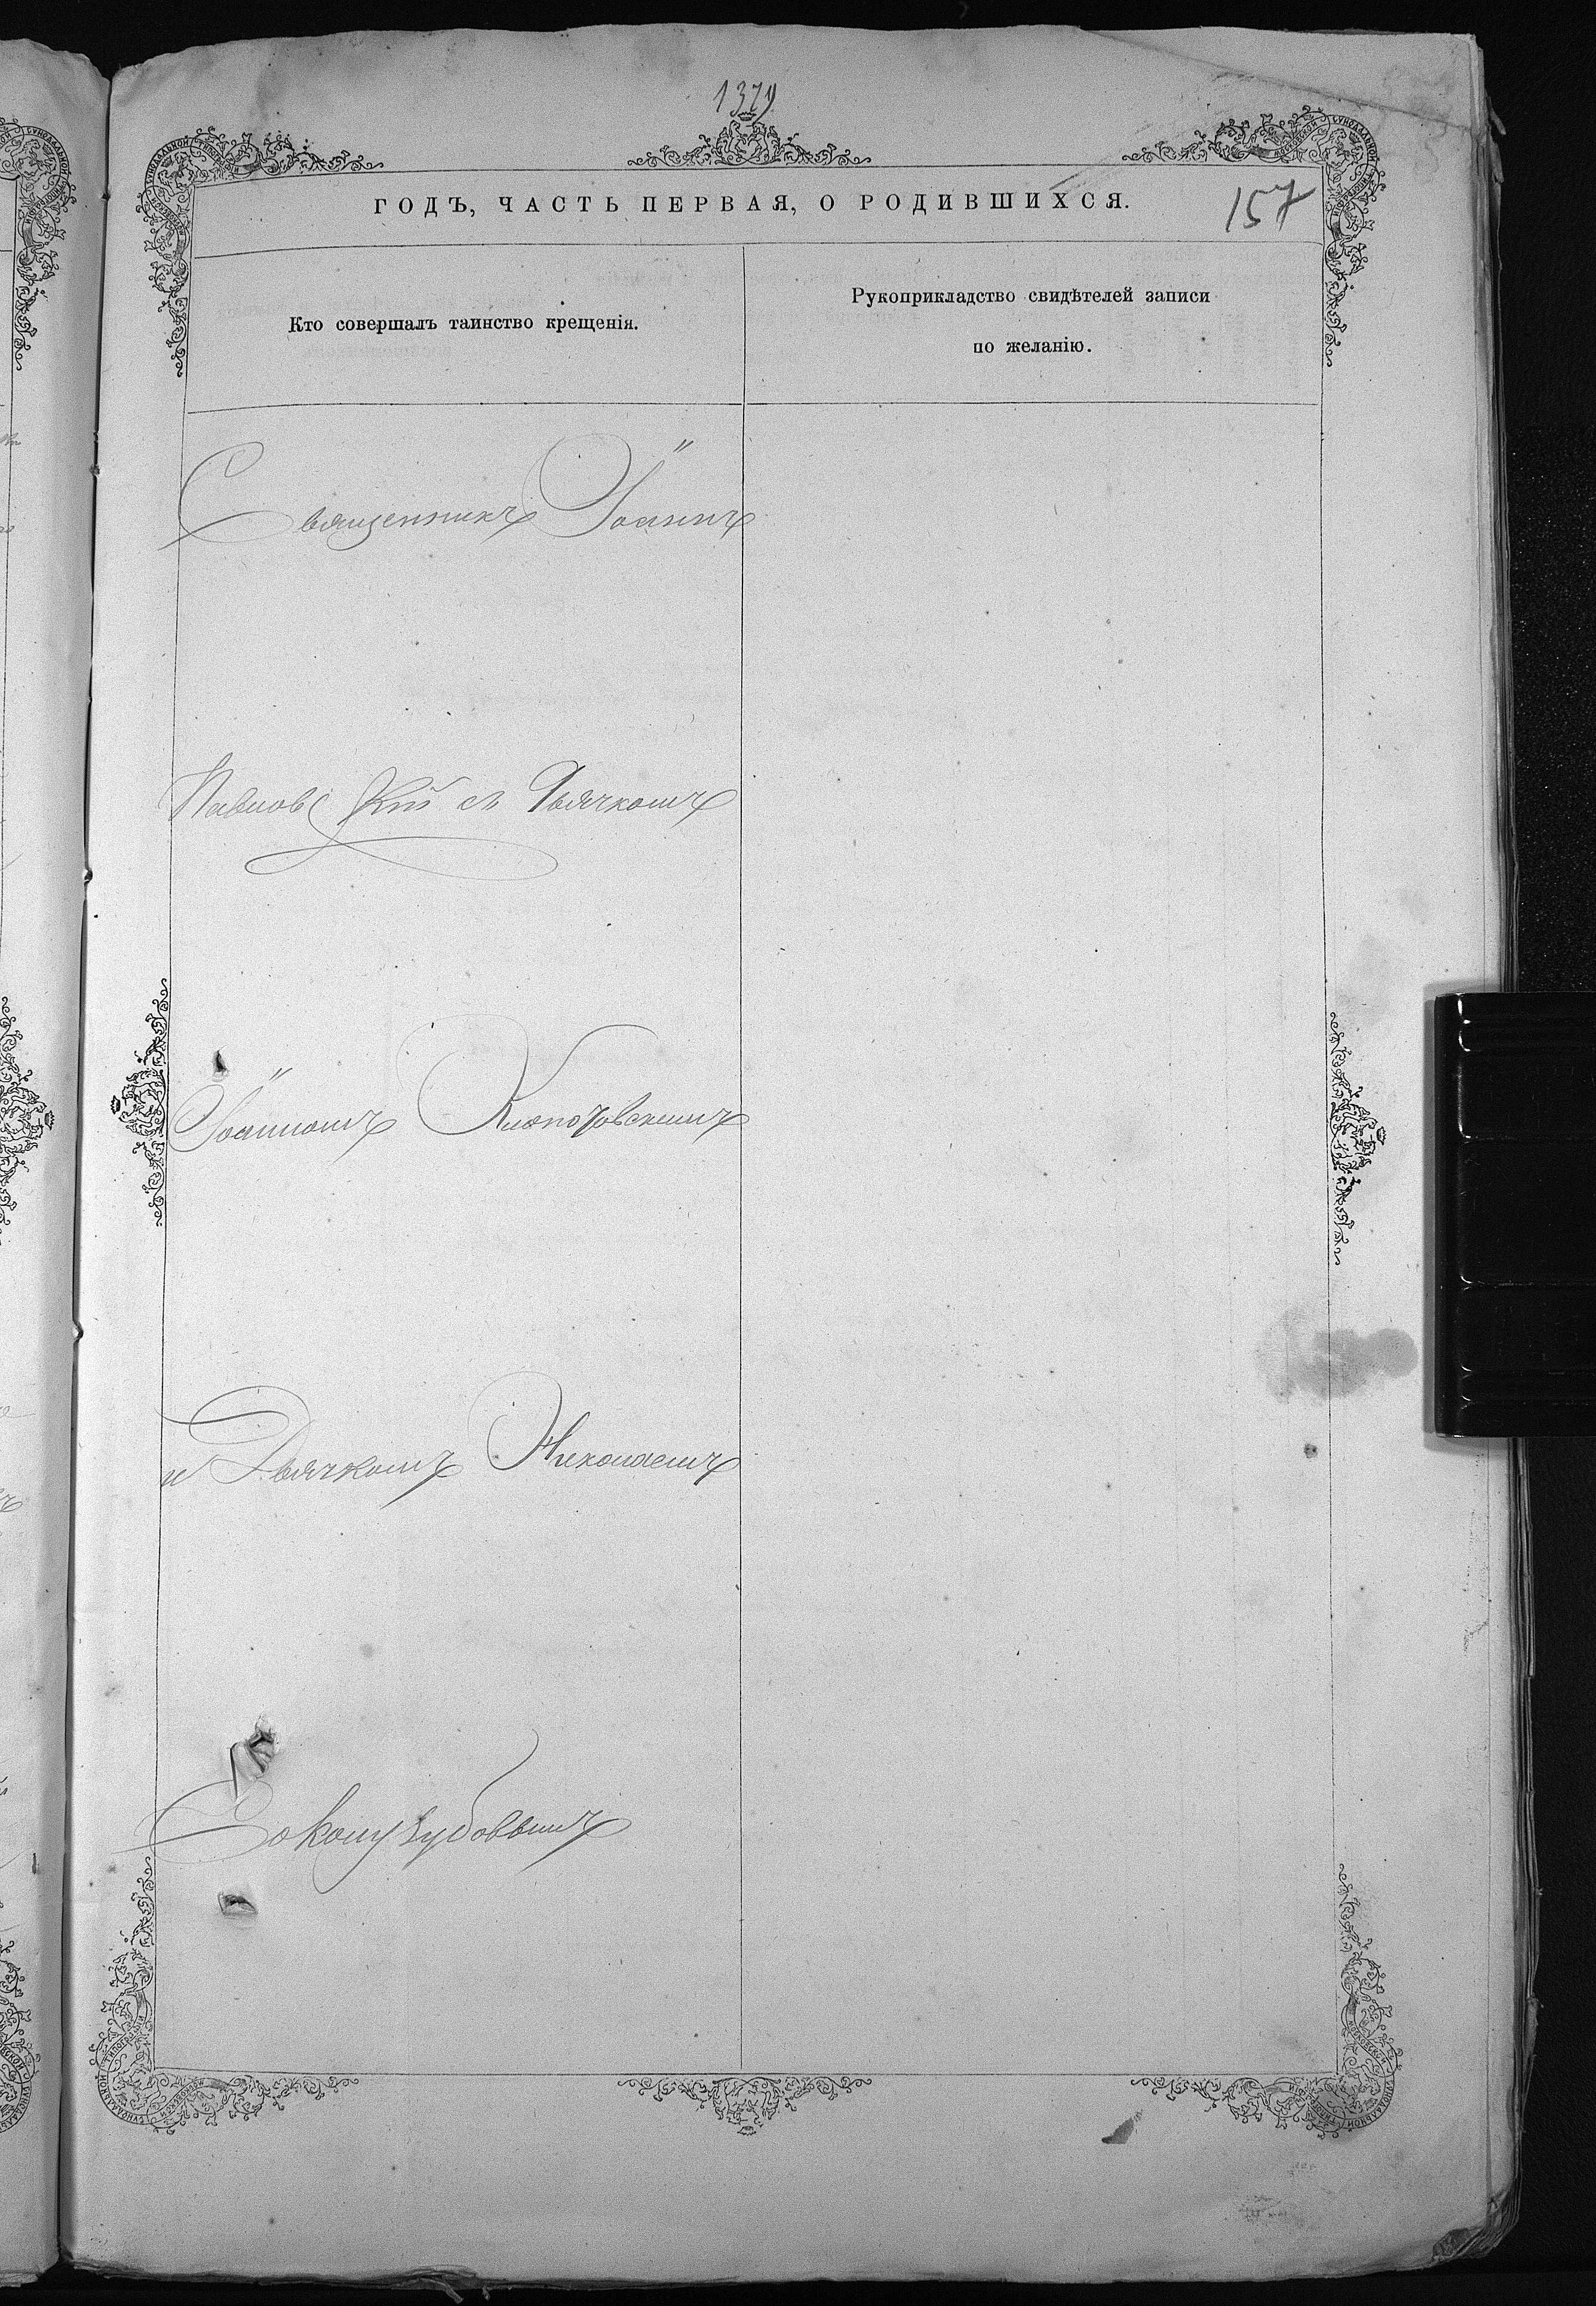 1379
157
ГОДЪ, ЧАСТЬ ПЕРВАЯ, О РОДИВШИХСЯ.
Кто совершалъ таинство крещенія.
Рукоприкладство свидѣтелей записи
по желанію.
Священникъ Іоаннъ
Павловскій съ Дьячкомъ
Іоанномъ Клепотовскимъ
и Дьячкомъ Николаемъ
Сокологубовымъ